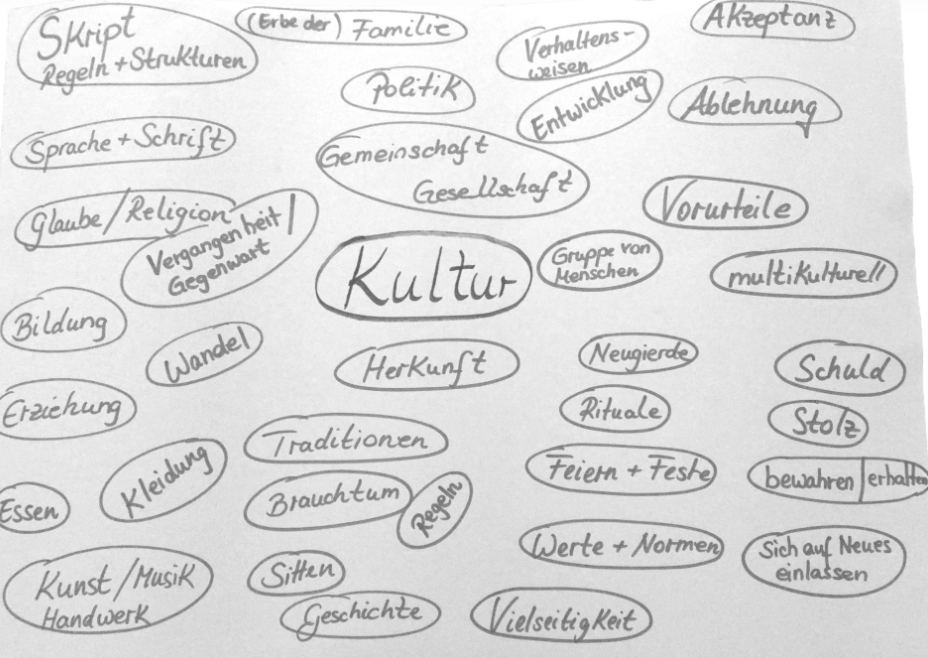 Skript
Regeln + Strukturen
(Erbe der) Familie
Verhaltens-
weisen
Akzeptanz
Politik
Entwicklung
Ablehnung
Sprache + Schrift
Gemeinschaft
Gesellschaft
Glaube/Religion
Vergangenheit/
Gegenwart
Vorurteile
Kultur
Gruppe von
Menschen
multikulturell
Bildung
Wandel
Herkunft
Neugierde
Schuld
Erziehung
Rituale
Stolz
Traditionen
Kleidung
Feiern + Feste
bewahren|erhalten
Essen
Brauchtum
Regeln
Werte + Normen
Sich auf Neues
einlassen
Kunst/Musik
Handwerk
Sitten
Geschichte
Vielseitigkeit